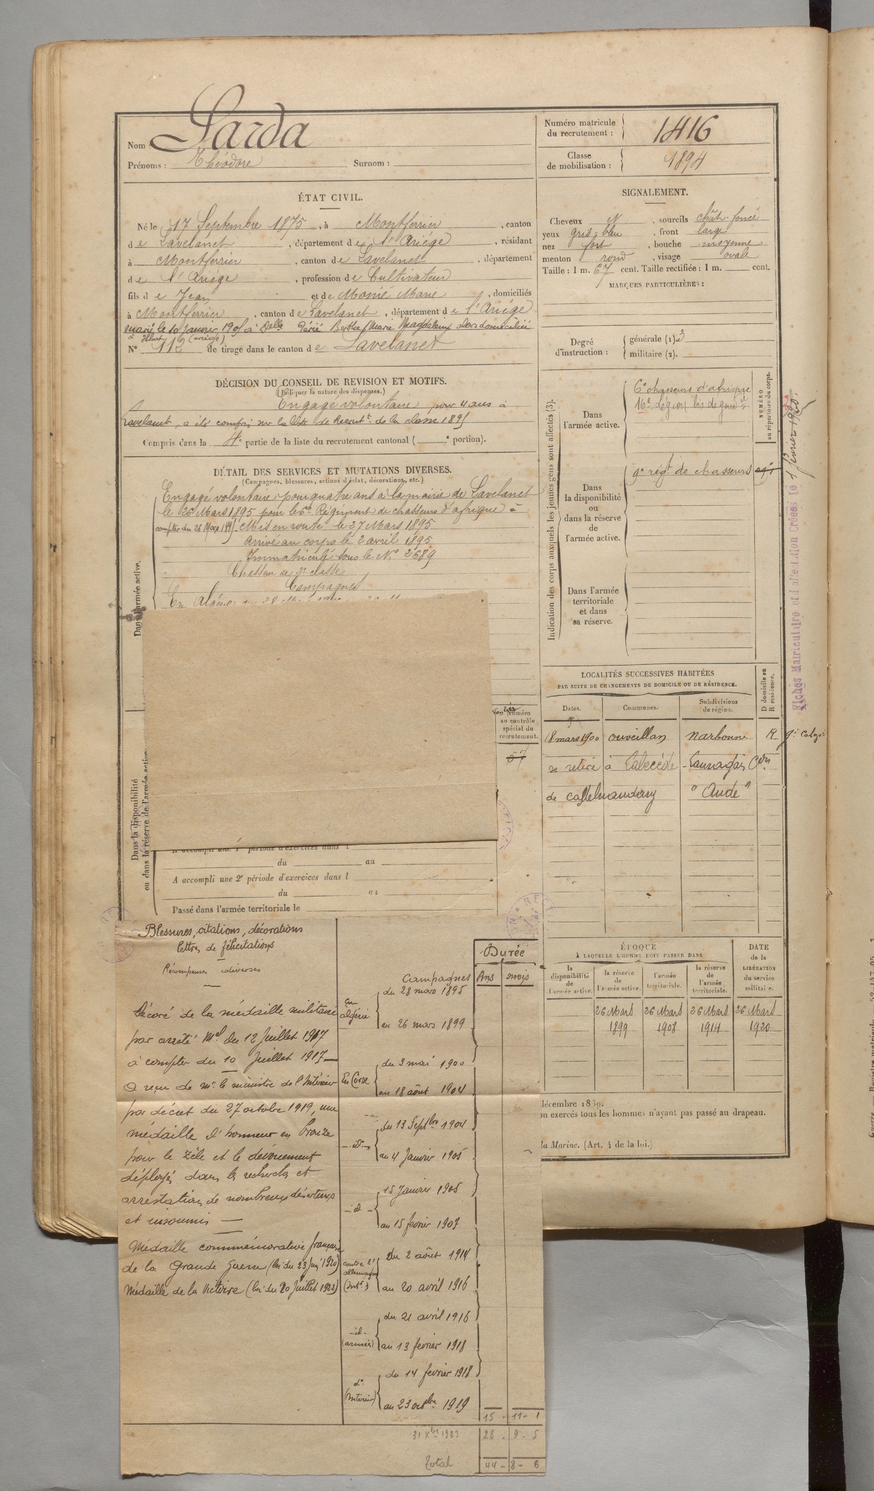 Nom Sarda
Prénoms : Théodore Surnom :
Numéro matricule du recrutement : 1416
Classe de mobilisation : 1894
ÉTAT CIVIL.
Né le 17 Septembre 1875, à Montferrier, canton
de Lavelanet, département de l'Ariége, résidant
à Montferrier, canton de Lavelanet, département
de l'Ariége, profession de Cultivateur
fils de Jean et de Monié Marie, domiciliés
à Montferrier, canton de Lavelanet, département de l'Ariége
marié le 10 janvier 1905 à Delle Berthe Marie Magdeleine
N° 112 de tirage dans le canton de Lavelanet
SIGNALEMENT.
Cheveux N, sourcils chât. foncé
yeux gris-bleu, front large
nez fort, bouche moyenne
menton rond, visage ovale
Taille : 1 m. 67 cent. Taille rectifiée : 1 m. cent.
MARQUES PARTICULIÈRES :
Degré d'instruction : générale (1) 3
militaire (2).
DÉCISION DU CONSEIL DE REVISION ET MOTIFS.
(Indiquer la nature des dispenses.)
Engagé volontaire pour 4 ans à
Lavelanet, a été compris sur la liste de Recrutt de la classe 1895
Compris dans la 4e partie de la liste du recrutement cantonal ( e portion).
DÉTAIL DES SERVICES ET MUTATIONS DIVERSES.
(Campagnes, blessures, actions d'éclat, décorations, etc.)
Engagé volontaire pour quatre ans à la mairie de Lavelanet
le 26 Mars 1895 pour le 6e Régiment de chasseurs d'afrique à
compter du 26 Mars 1895 Mis en route le 27 Mars 1895
Arrivé au corps le 2 avril 1895
Immatriculé sous le N° 2589
Chasseur de 2e classe
Campagnes
Dans l'armée active.
Dans la disponibilité ou dans la réserve de l'armée active.
Indication des corps auxquels les jeunes gens sont affectés (3).
Dans l'armée active.
6e chasseurs d'afrique
16e légion
Dans la disponibilité ou dans la réserve de l'armée active.
9e régt de chasseurs
Dans l'armée territoriale et dans sa réserve.
NUMÉRO au répertoire du corps.
Numéro au contrôle spécial du recrutement.
57
A accompli une 1re période d'exercices dans l
du au
A accompli une 2e période d'exercices dans l
du au
Passé dans l'armée territoriale le
LOCALITÉS SUCCESSIVES HABITÉES
PAR SUITE DE CHANGEMENTS DE DOMICILE OU DE RÉSIDENCE.
Dates. Communes. Subdivisions de région. D domicile ou R résidence.
18 mars 1900 Ouveillan Narbonne R
se retire à Labécède-Lauragais Con
de Castelnaudary "Aude"
ÉPOQUE
À LAQUELLE L'HOMME DOIT PASSER DANS
la disponibilité de l'armée active.
la réserve de l'armée active.
l'armée territoriale.
la réserve de l'armée territoriale.
DATE de la LIBÉRATION du service militaire.
26 Mars 1899
26 Mars 1908
26 Mars 1914
26 Mars 1920
décembre 1889.
on exercés tous les hommes n'ayant pas passé au drapeau.
la Marine. (Art. 4 de la loi.)
Blessures, citations, décorations
lettres de félicitations
Récompenses diverses
Décoré de la médaille militaire
par arrêté Mel du 12 Juillet 1917
à compter du 10 Juillet 1917
a reçu de Mr le ministre de l'Intérieur
par décret du 27 octobre 1919, une
médaille d'honneur en bronze
pour le zèle et le dévouement
déployés dans les recherches et
arrestations de nombreux déserteurs
et insoumis
Médaille commémorative française
de la Grande Guerre (loi du 23 juin 1920)
Médaille de la Victoire (loi du 20 Juillet 1922)
Campagnes
Durée
Ans mois
en algérie du 28 mars 1895
au 26 mars 1899
En Corse du 3 mai 1900
au 18 août 1904
-d°- du 13 Septbre 1904
au 4 Janvier 1905
-d°- 15 Janvier 1905
au 15 février 1907
contre l'allemagne (Intr) Du 2 août 1914
au 20 avril 1916
-d- (armées) du 21 avril 1916
au 13 février 1918
d° (intérieur) du 14 février 1918
au 23 octbre 1919
15 - 11 - 1
28 - 9 - 5
Total 44 - 8 - 6